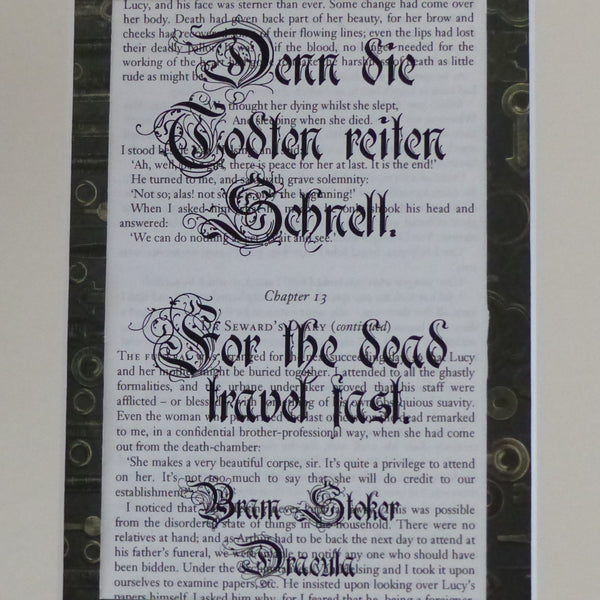 Lucy, and his face was sterner than ever. Some change had come over
her body. Death had given back part of her beauty, for her brow and
cheeks had recovered of their flowing lines; even the lips had lost
their deadly pallor. of the blood, no needed for the
working of the heart, had gone make the harshness of death as little
rude as might be.
Denn die
We thought her dying whilst she slept,
And sleeping when she died.
Todten reiten
I stood beside
'Ah, well, there is peace for her at last. It is the end!'
He turned to me, and said with grave solemnity:
'Not so; alas! not so. It is only the beginning!'
When I asked him shook his head and
answered:
Schnell.
'We can do nothing as yet. Wait and see.'
Chapter 13
DR SEWARD'S DIARY (continued)
For the dead
THE FUNERAL was arranged for the next succeeding day, so that Lucy
and her mother might be buried together. I attended to all the ghastly
formalities, and the urbane undertaker proved that his staff were
travel fast.
afflicted – or blessed – with something of his own obsequious suavity.
Even the woman who performed the last offices for the dead remarked
to me, in a confidential brother-professional way, when she had come
out from the death-chamber:
'She makes a very beautiful corpse, sir. It's quite a privilege to attend
on her. It's not too much to say that she will do credit to our
establishment
Bram Stoker
I noticed that was possible
from the disordered state of things in the household. There were no
relatives at hand; and as Arthur had to be back the next day to attend at
Dracula
his father's funeral, we were unable to notify any one who should have
been bidden. Under the Helsing and I took it upon
ourselves to examine papers, etc. He insisted upon looking over Lucy's
papers himself. I asked him why, for I feared that he, being a foreigner,